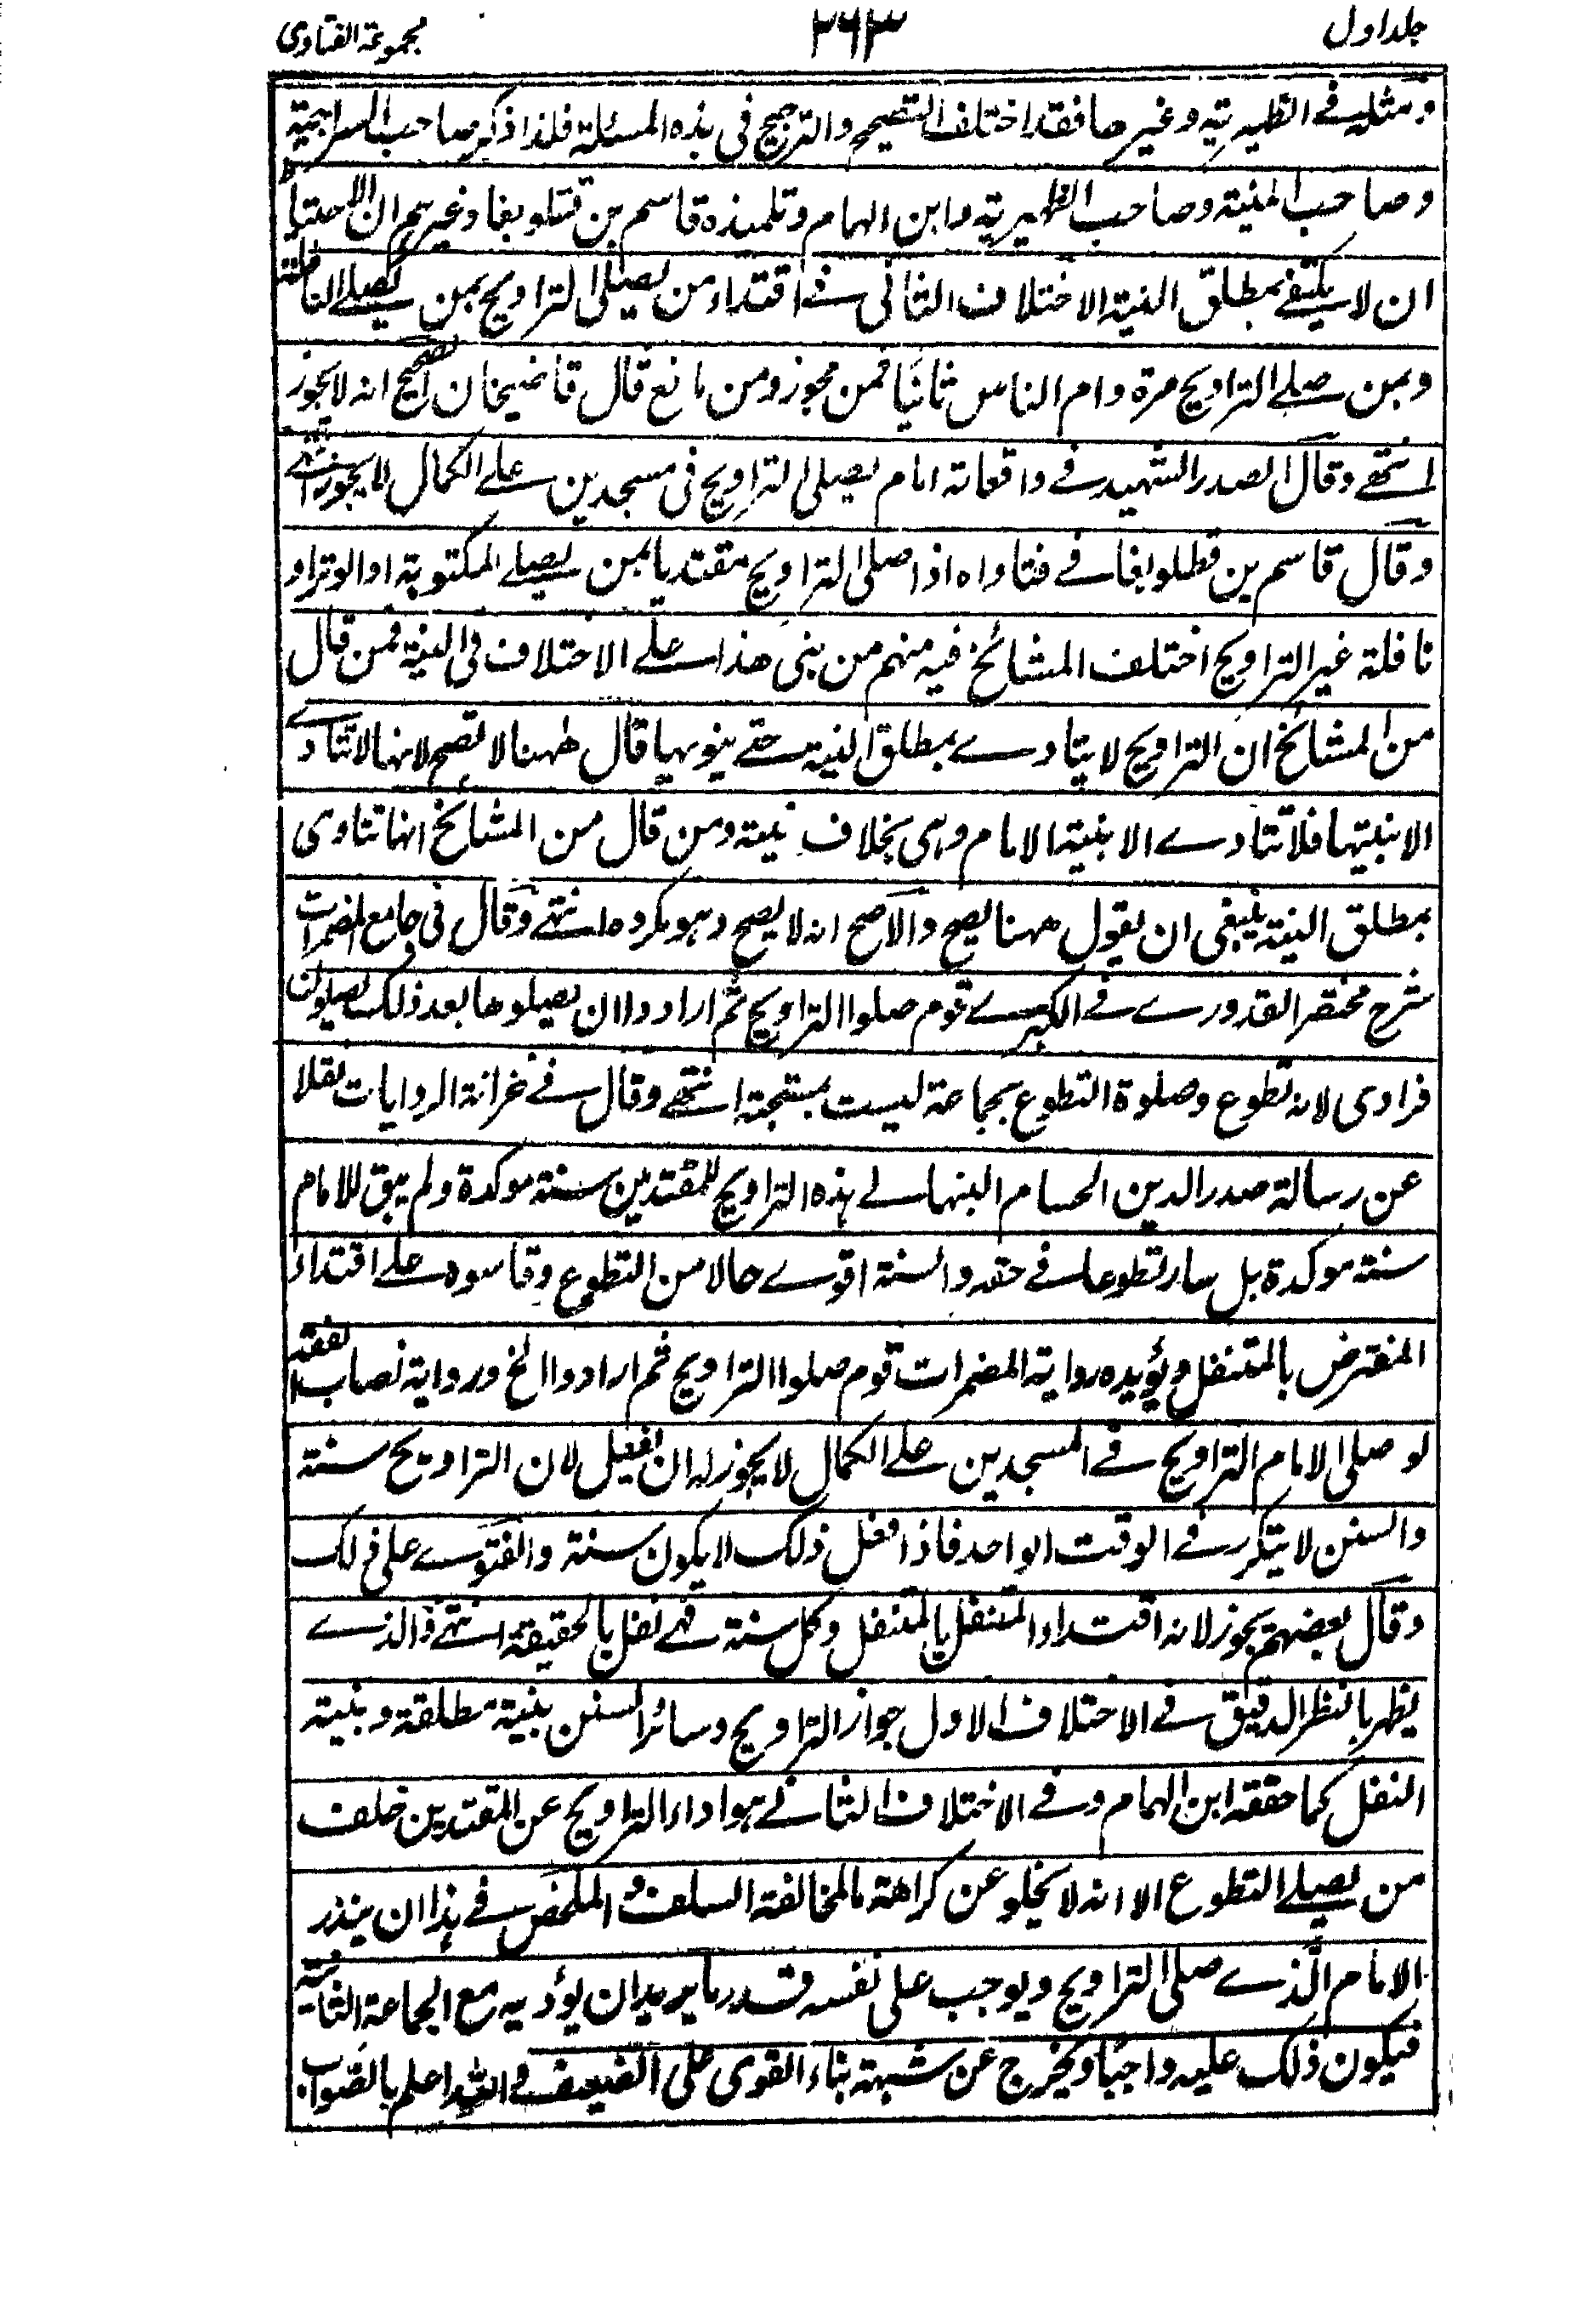 جلد اول
۲۶۳
مجموعة الفتاوی
ومثله فی الظهیریة وغیرها فقد اختلف التصحیح والترجیح فی هذه المسئلة فلذا ذکر صاحب السراجیة
وصاحب المنیة وصاحب الظهیریة وابن الهمام وتلمیذه قاسم بن قتلوبغا وغیرهم ان الاحتیاط
ان لا یکتفی بمطلق النیة الاختلاف الثانی فی اقتداء من یصلی التراویح بمن یصلی النافلة
وبمن صلی التراویح مرة وام الناس ثانیًا فمن مجوز ومن مانع قال قاضیخان الصحیح انه لا یجوز
انتهی وقال الصدر الشهید فی واقعاته امام یصلی التراویح فی مسجدین علی الکمال لا یجوز انتهی
وقال قاسم بن قطلوبغا فی فتاواه اذا صلی التراویح مقتدیا بمن یصلی المکتوبة او الوتر او
نافلة غیر التراویح اختلف المشائخ فیه منهم من بنی هذا علی الاختلاف فی النیة فمن قال
من المشائخ ان التراویح لا یتادی بمطلق النیة حتی ینویها قال ههنا لا تصح لانها لا تتادی
الا بنیتها فلا تتادی الا بنیة الامام وهی بخلاف نیته ومن قال من المشائخ انها تتادی
بمطلق النیة ینبغی ان یقول ههنا یصح والاصح انه لا یصح وهو مکروه انتهی وقال فی جامع المضمرات
شرح مختصر القدوری فی الکبری قوم صلوا التراویح ثم ارادوا ان یصلوها بعد ذلک یصلون
فرادی لانه تطوع وصلوة التطوع بجماعة لیست بمستحبة انتهی وقال فی خزانة الروایات نقلا
عن رسالة صدر الدین الحسام البنهالی هذه التراویح للمقتدین سنة موکدة ولم یبق للامام
سنة موکدة بل صار تطوعا فی حقه والسنة اقوی حالا من التطوع وقاسوه علی اقتداء
المفترض بالمتنفل ویؤیده روایة المضمرات قوم صلوا التراویح ثم ارادوا الخ وروایة نصاب الفقه
لو صلی الامام التراویح فی المسجدین علی الکمال لا یجوز له ان یفعل لان التراویح سنة
والسنن لا یتکرر فی الوقت الواحد فاذا فعل ذلک لا یکون سنة والفتوی علی ذلک
وقال بعضهم یجوز لانه اقتداء المتنفل بالمتنفل وکل سنة فهی نفل بالحقیقة انتهی والذی
یظهر بالنظر الدقیق فی الاختلاف الاول جواز التراویح وسائر السنن بنیة مطلقة وبنیة
النفل کما حققه ابن الهمام وفی الاختلاف الثانی هو اداء التراویح عن المقتدین خلف
من یصلی التطوع الا انه لا یخلو عن کراهة بالمخالفة السلف والملخص فی هذا ان ینذر
الامام الذی صلی التراویح ویوجب علی نفسه قدر ما یرید ان یؤدیه مع الجماعة الثانیة
فیکون ذلک علیه واجبًا ویخرج عن شبهة بناء القوی علی الضعیف والله اعلم بالصواب